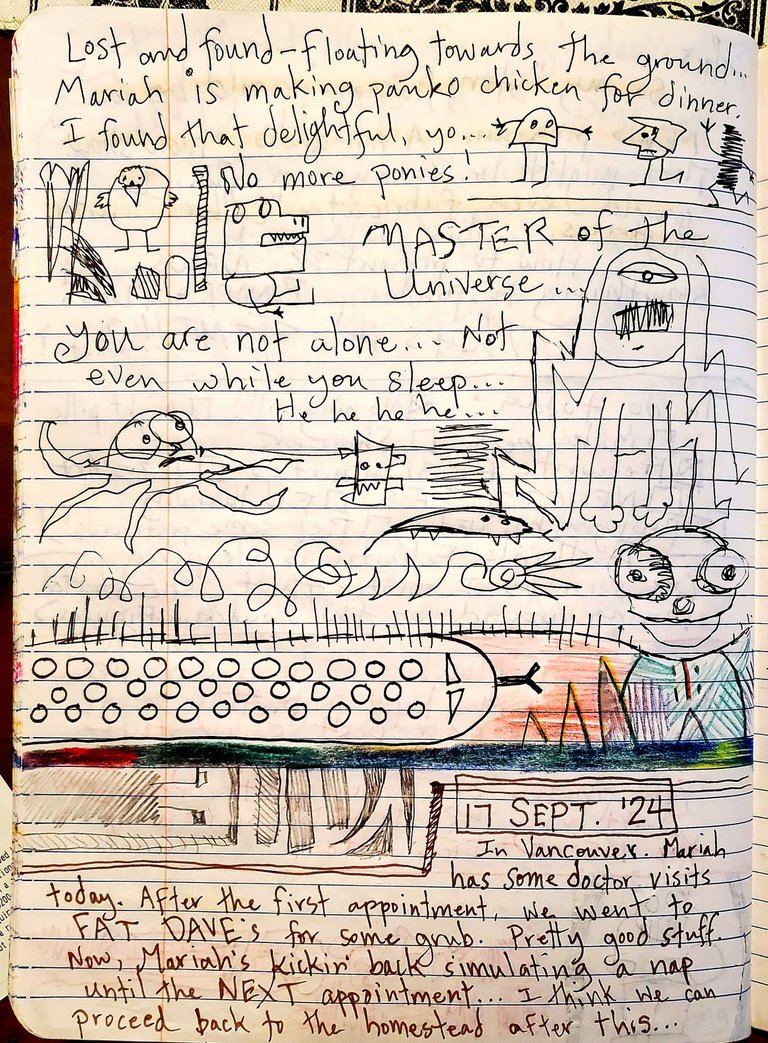 Lost and found - floating towards the ground...
Mariah is making panko chicken for dinner.
I found that delightful, yo...
No more ponies!
MASTER of the
Universe...
You are not alone... Not
even while you sleep...
He he he he...
17 SEPT. '24
In Vancouver. Mariah
has some doctor visits
today. After the first appointment, we went to
FAT DAVE's for some grub. Pretty good stuff.
Now, Mariah's kickin' back simulating a nap
until the NEXT appointment... I think we can
proceed back to the homestead after this...